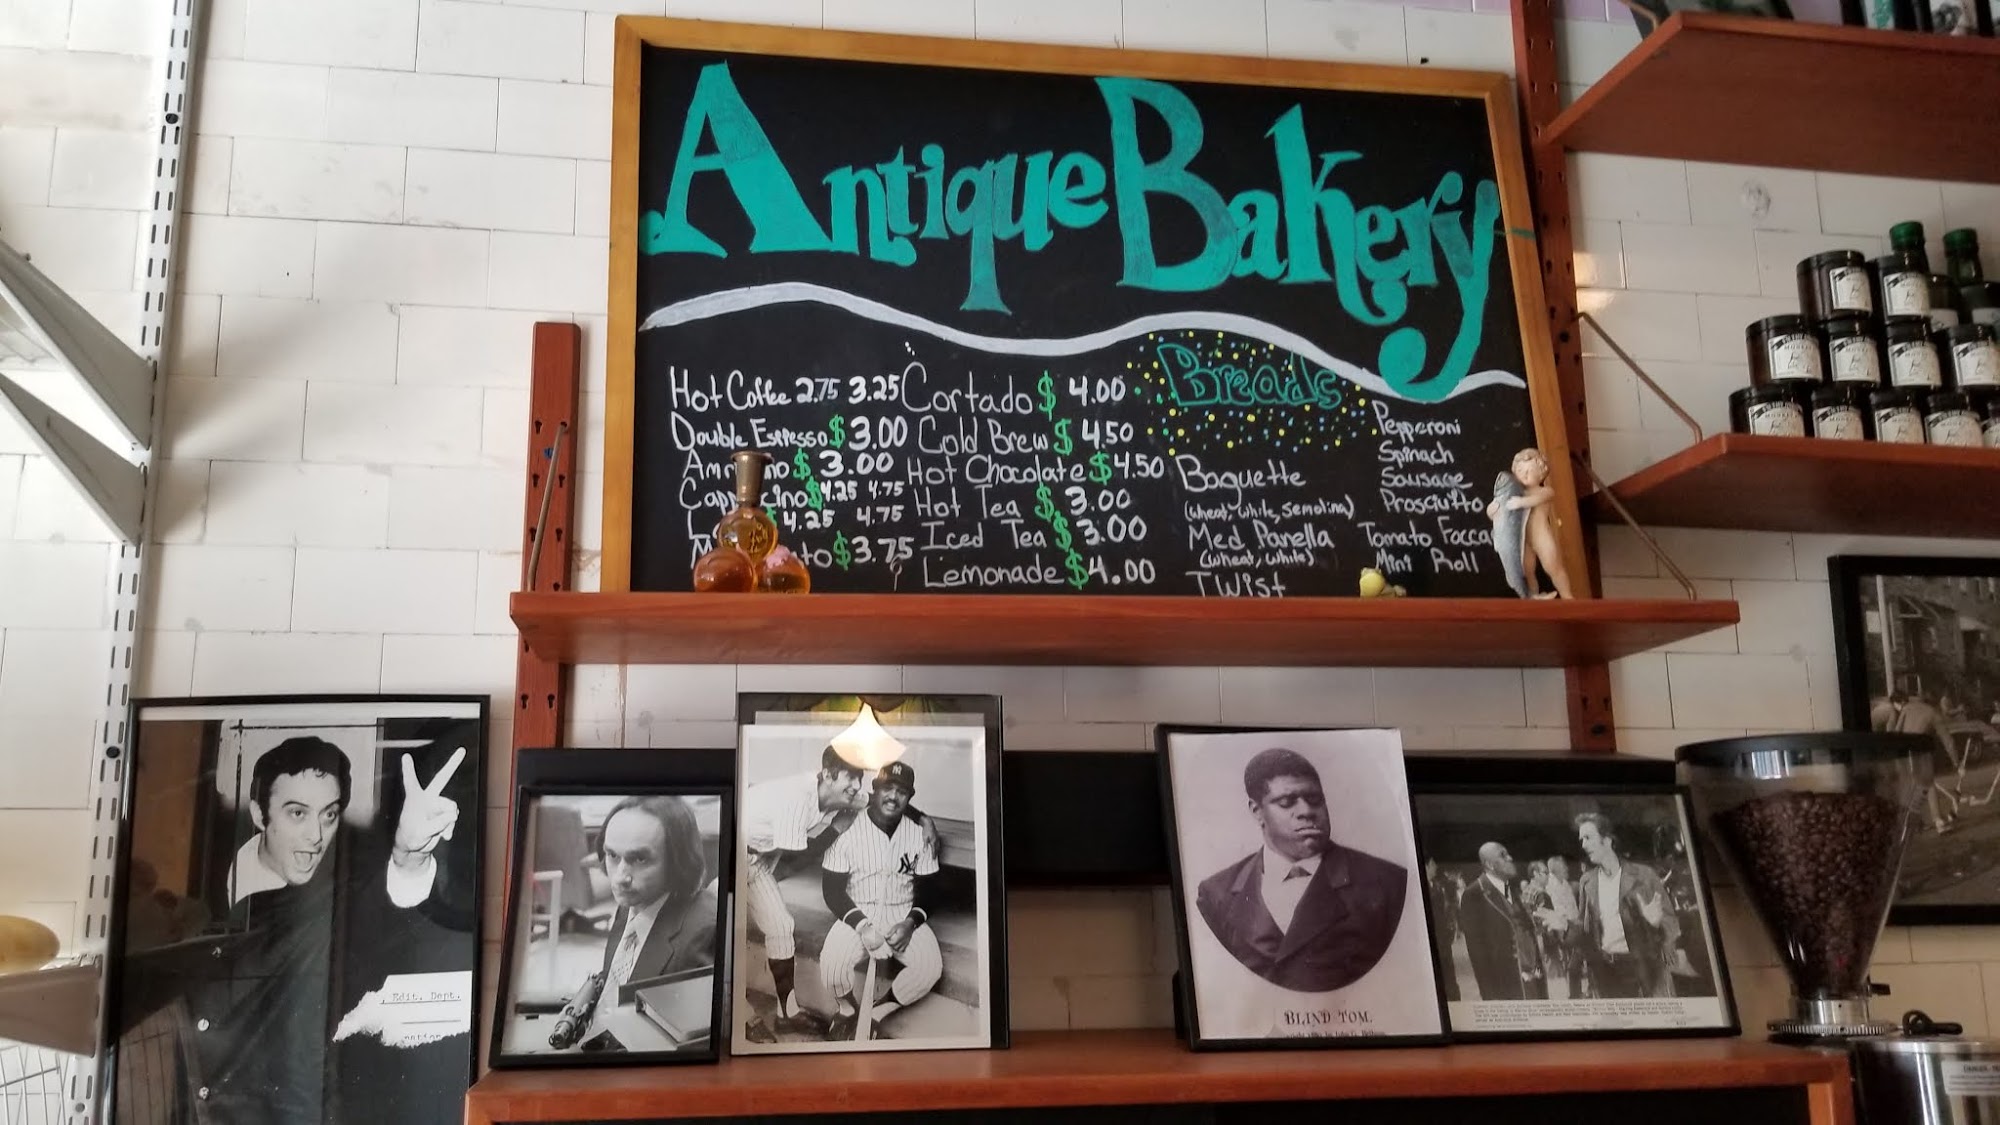 Antique Bakery
Hot Coffee 2.75 3.25
Double Espresso $ 3.00
$ 3.00
$ 4.25 4.75
4.25 4.75
$ 3.75
Cortado $ 4.00
Cold Brew $ 4.50
Hot Chocolate $ 4.50
Hot Tea $ 3.00
Iced Tea $ 3.00
Lemonade $ 4.00
Breads
Baguette
(wheat, white, semolina)
Med Panella
(wheat, white)
Twist
Pepperoni
Spinach
Sausage
Prosciutto
Tomato Focca
Mini Roll
Edit. Dept.
NY
BLIND TOM.